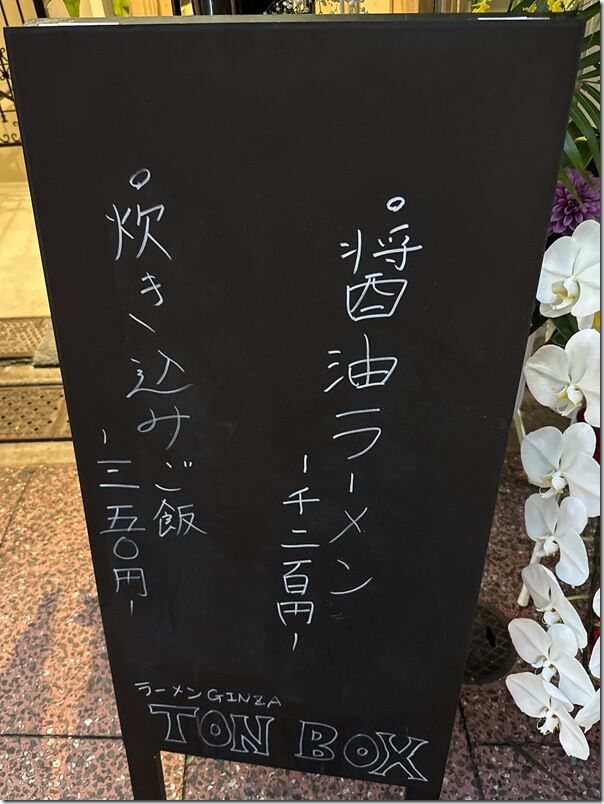 ○醤油ラーメン
ー千二百円ー
○炊き込みご飯
ー三五〇円ー
ラーメンGINZA
TON BOX